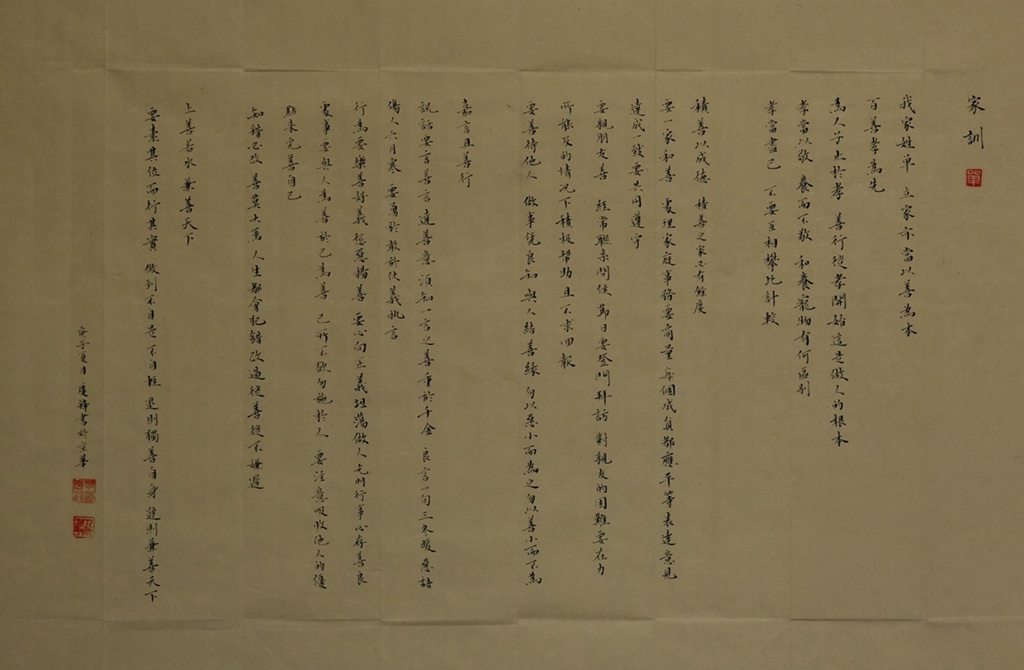 家訓
單
我家姓單 立家亦當以善為本
百善孝為先
為人子止於孝 善行從孝開始 這是做人的根本
孝當以敬 養而不敬 和養寵物有何區別
孝當盡己 不要互相攀比計較
積善以成德 積善之家必有餘慶
要一家和善 處理家庭事務要商量 每個成員都應平等表達意見
達成一致要共同遵守
要親朋友善 經常聯系問候 節日要登門拜訪 對親友的困難要在力
所能及的情況下積极幫助且不求回報
要善待他人 做事凭良知 與人結善緣 勿以惡小而為之 勿以善小而不為
嘉言且善行
說話要言善言達善意 須知一言之善重於千金 良言一句三冬暖 惡語
傷人六月寒 要勇於敢於仗義執言
行為要樂善好義 懲惡揚善 要心向正義坦蕩做人 光明行事心存善良
處事要與人為善 於己為善 己所不欲勿施於人 要注意吸收他人的優
點來完善自己
知錯必改 善莫大焉 人生都會犯錯 改過從善從不嫌遲
上善若水 兼善天下
要素其位而行其實 做到不自是 不自矜 退則獨善自身 達則兼善天下
庚子夏月 書於京華